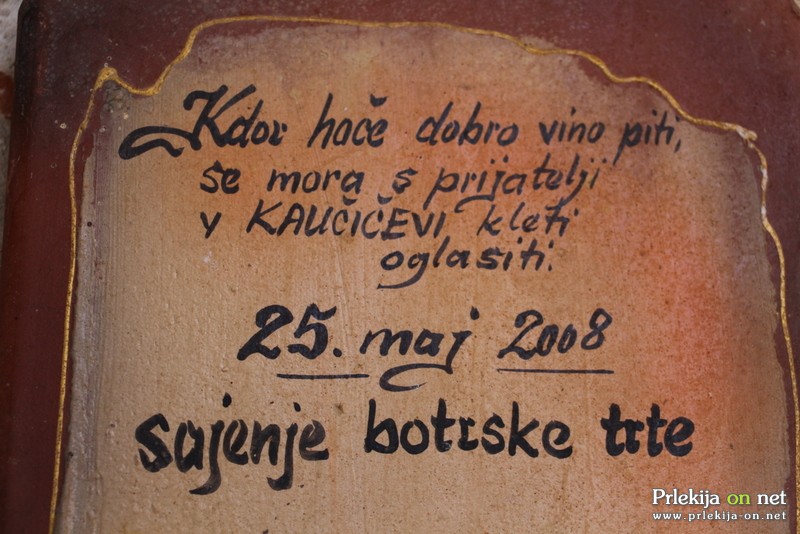 Kdor hoče dobro vino piti,
se mora s prijatelji
v KAUČIČEVI kleti
oglasiti.
25. maj 2008
sajenje botrske trte
Prlekija on net
www.prlekija-on.net